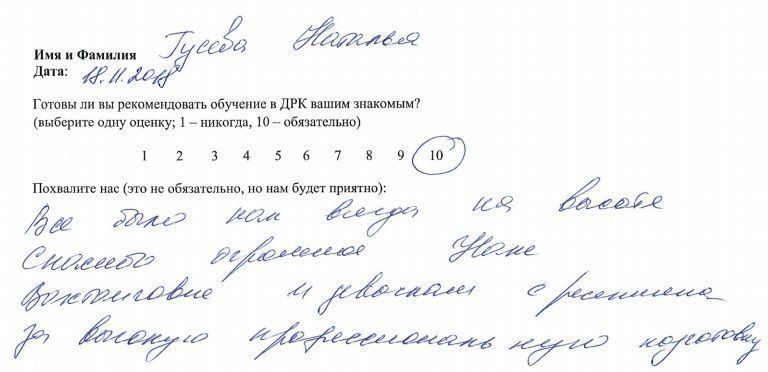 Имя и Фамилия Гусева Наталья
Дата: 18.11.2018
Готовы ли вы рекомендовать обучение в ДРК вашим знакомым?
(выберите одну оценку; 1 – никогда, 10 – обязательно)
1 2 3 4 5 6 7 8 9 10
Похвалите нас (это не обязательно, но нам будет приятно):
Все было как всегда на высоте
Спасибо огромное
и девочкам с ресепшена
за высокую профессиональную подготовку